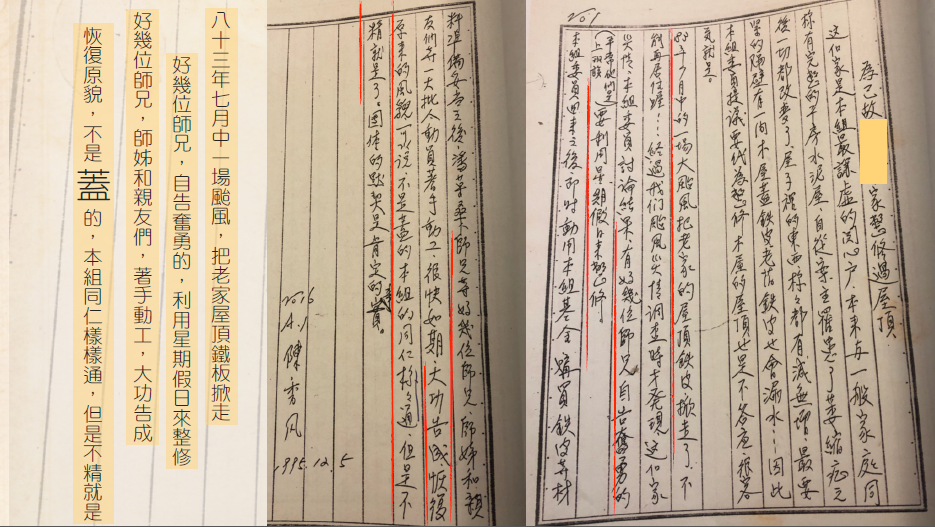 201
為已故
家整修過屋頂
這個家是本組最謙虛的関心户本来与一般家庭同
樣有完整的平房水泥屋自從案主罹患了萎縮症之
後一切都改變了屋子裡的東西樣々都有減無增最要
緊的隔壁有一间木屋蓋鉄皮老旧鉄皮也會漏水:因此
本組委員提議要代為整修木屋的屋頂也是不答应很客
気就是。
83年7月中的一場大颱風把老家的屋頂鉄皮掀走了不
能再居住喔!..經過我们颱風災情調查時才發現這个家
災情,本組委員討論結果有好幾位師兄自告奮勇的
(平常他们是上班族)要利用星期假日来整修。
本組委員回来之後即時動用本組基金購買鉄皮等材
料準備妥当之後師兄等好幾位師兄師姊和親
友们等一大批人動員著手動工很快如期大功告成恢復
原来的風貌不是蓋的本組的同仁樣々通但是不
精就是了團体的默契是肯定的。
陳秀凡
1995.12.5
八十三年七月中一場颱風,把老家屋頂鐵板掀走
好幾位師兄,自告奮勇的,利用星期假日來整修
好幾位師兄,師姊和親友們,著手動工,大功告成
恢復原貌,不是蓋的,本組同仁樣樣通,但是不精就是